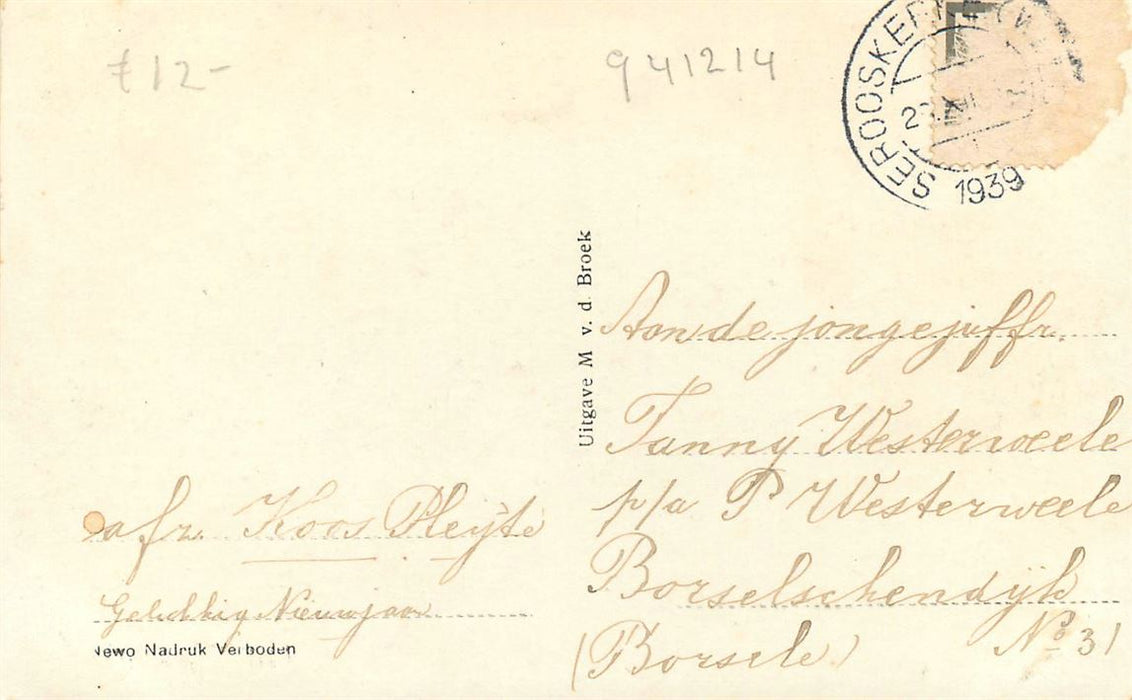 £12-
941214
SEROOSKERKE (W
1939
Uitgave M v. d. Broek
Aan de jongejuffr.
Fanny Westerweele
p/a P Westerweele
Borselschendijk
No 31
(Borsele)
afz. Koos Pleijte
Gelukkig Nieuwjaar
Newo Nadruk Verboden